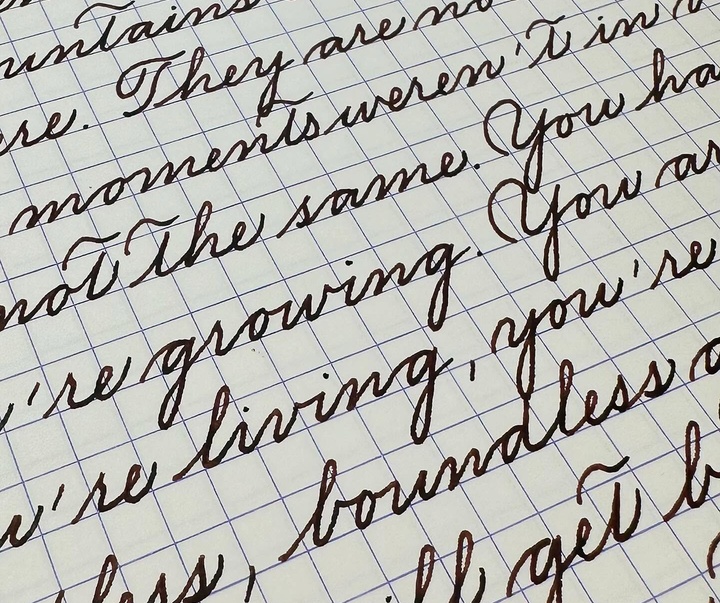 untains
ere. They are no
moments weren't in
not the same. You ha
're growing. You ar
u're living, you're
u're boundless
less, ll get b